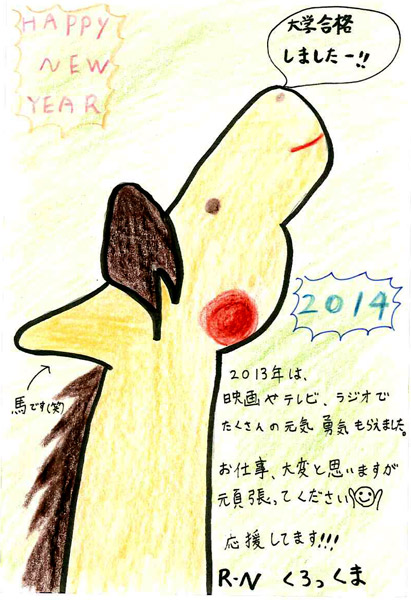 HAPPY
NEW
YEAR
大学合格
しましたー!!
2014
馬です(笑)
2013年は、
映画やテレビ、ラジオで
たくさんの元気 勇気 もらえました。
お仕事、大変と思いますが
元頁張ってください
応援してます!!!
R-N くろっくま